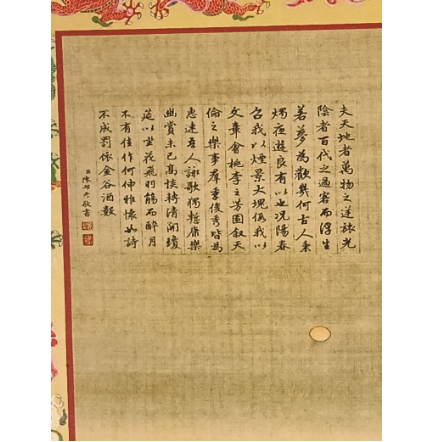 夫天地者萬物之逆旅光
陰者百代之過客而浮生
若夢為歡幾何古人秉
燭夜遊良有以也况陽春
召我以煙景大塊假我以
文章會桃李之芳園叙天
倫之樂事羣季俊秀皆為
惠連吾人詠歌獨慙康樂
幽賞未已高談轉清開瓊
筵以坐花飛羽觴而醉月
不有佳作何伸雅懷如詩
不成罰依金谷酒數
敬書